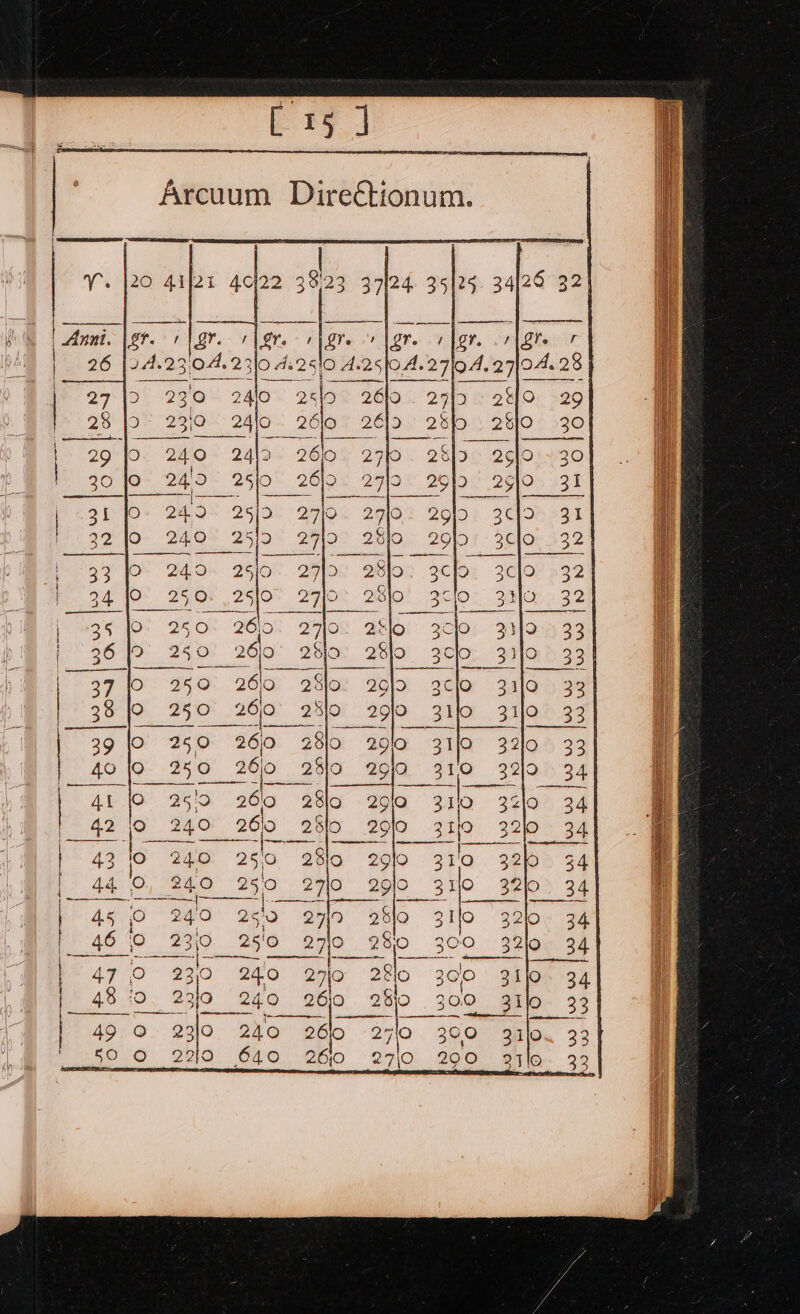 [ 15 ]
Arcuum Directionum.
♈. 20 41 21 40 22 38 23 37 24 35 25 34 26 32
Anni. gr. ′ gr. ′ gr. ′ gr. ′ gr. ′ gr. ′ gr. ′
26 0 A.23 0 A.23 0 A.25 0 A.25 0 A.27 0 A.27 0 A.28
27 0 23 0 24 0 25 0 26 0 27 0 28 0 29
28 0 23 0 24 0 26 0 26 0 28 0 28 0 30
29 0 24 0 24 0 26 0 27 0 28 0 29 0 30
30 0 24 0 25 0 26 0 27 0 29 0 29 0 31
31 0 24 0 25 0 27 0 27 0 29 0 30 0 31
32 0 24 0 25 0 27 0 28 0 29 0 30 0 32
33 0 24 0 25 0 27 0 28 0 30 0 30 0 32
34 0 25 0 25 0 27 0 28 0 30 0 31 0 32
35 0 25 0 26 0 27 0 28 0 30 0 31 0 33
36 0 25 0 26 0 28 0 28 0 30 0 31 0 33
37 0 25 0 26 0 28 0 29 0 30 0 31 0 33
38 0 25 0 26 0 28 0 29 0 31 0 31 0 33
39 0 25 0 26 0 28 0 29 0 31 0 32 0 33
40 0 25 0 26 0 28 0 29 0 31 0 32 0 34
41 0 25 0 26 0 28 0 29 0 31 0 32 0 34
42 0 24 0 26 0 28 0 29 0 31 0 32 0 34
43 0 24 0 25 0 28 0 29 0 31 0 32 0 34
44 0 24 0 25 0 27 0 29 0 31 0 32 0 34
45 0 24 0 25 0 27 0 28 0 31 0 32 0 34
46 0 23 0 25 0 27 0 28 0 30 0 32 0 34
47 0 23 0 24 0 27 0 28 0 30 0 31 0 34
48 0 23 0 24 0 26 0 28 0 30 0 31 0 33
49 0 23 0 24 0 26 0 27 0 30 0 31 0 33
50 0 22 0 64 0 26 0 27 0 29 0 31 0 33